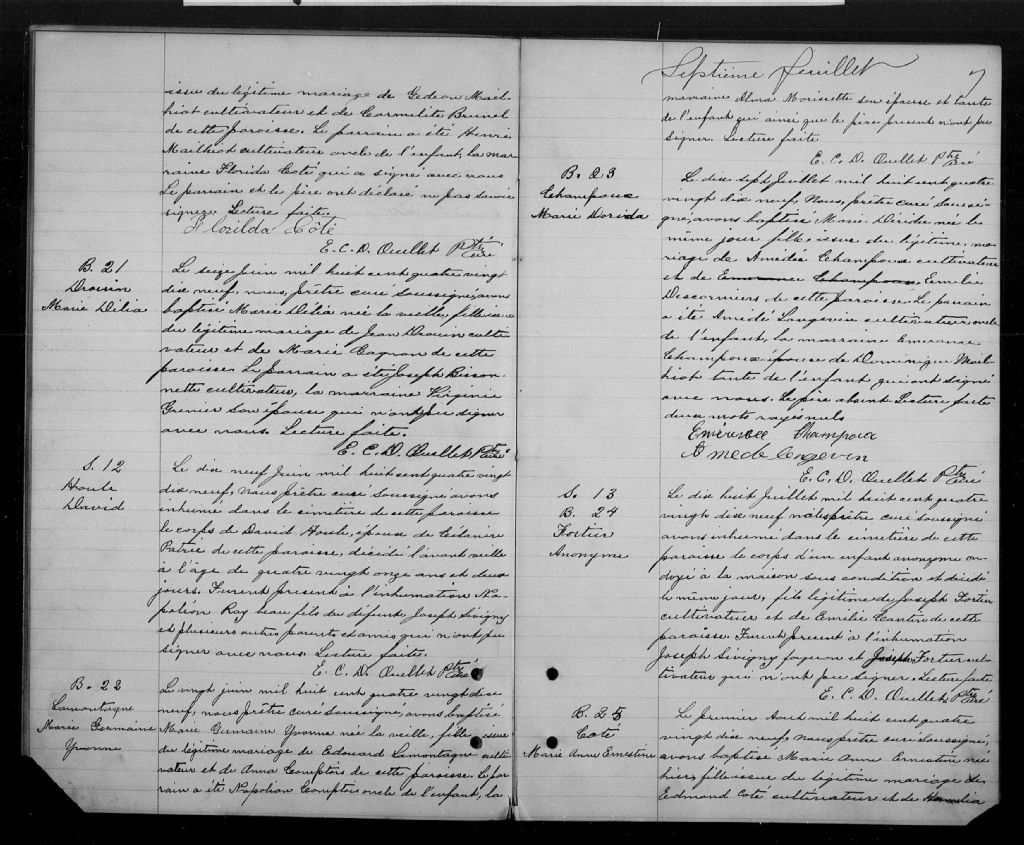 issue du légitime mariage de Gédéon Mail-
hiot cultivateur et de Carmélite Brunel
de cette paroisse. Le parrain a été Henri
Mailhiot cultivateur oncle de l'enfant, la mar-
raine Florida Coté qui a signé avec nous
Le parrain et le père ont déclaré ne pas savoir
signer. Lecture faite.
Florilda Côté
E. C. D. Ouellet Ptre Curé
B. 21
Drouin
Marie Délia
Le seize Juin mil huit cent quatre vingt
dix neuf, nous, prêtre curé soussigné, avons
baptisé Marie Délia née la veille, fille issue
du légitime mariage de Jean Drouin culti-
vateur et de Marie Gagnon de cette
paroisse. Le parrain a été Joseph Bisson-
nette cultivateur, la marraine Virginie
Grenier son épouse qui n'ont pu signer
avec nous. Lecture faite.
E. C. D. Ouellet Ptre Curé
S. 12
Houle
David
Le dix neuf Juin mil huit cent quatre vingt
dix neuf, Nous prêtre curé Soussigné avons
inhumé dans le cimetière de cette paroisse
le corps de David Houle, époux de
de cette paroisse, décédé l'avant veille
à l'âge de quatre vingt onze ans et deux
jours. Furent présent à l'inhumation Na-
poléon Roy beau fils du défunt, Joseph Sévigny
et plusieurs autres parents et amis qui n'ont pu
signer avec nous. Lecture faite.
E. C. D. Ouellet Ptre Curé
B. 22
Lamontagne
Marie Germaine
Yvonne
Le vingt juin mil huit cent quatre vingt dix
neuf, nous prêtre curé soussigné, avons baptisé
Marie Germaine Yvonne née la veille, fille issue
du légitime mariage de Edouard Lamontagne culti-
vateur et de Anna Comptois de cette paroisse. Le par-
rain a été Napoléon Comptois oncle de l'enfant, la
Septième feuillet 7
marraine Alma Morissette son épouse et tante
de l'enfant qui ainsi que le père présent n'ont pu
signer. Lecture faite
E. C. D. Ouellet Ptre Curé
B. 23
Champoux
Marie Dorida
Le dix sept Juillet mil huit cent quatre
vingt dix neuf, Nous, prêtre curé soussi-
gné, avons baptisé Marie née le
même jour fille issue du légitime ma-
riage de Champoux cultivateur
et de Emerance Champoux, Emilie
Descormiers de cette paroisse. Le parrain
a été Amédé Langevin cultivateur, oncle
de l'enfant, la marraine Emerance
Champoux épouse de Dominique Mail-
hiot tante de l'enfant qui ont signé
avec nous. Le père absent. Lecture faite
deux mots rayés nuls
Emérence Champoux
Amedé Langevin
E. C. D. Ouellet Ptre Curé
S. 13
B. 24
Fortier
Anonyme
Le dix huit Juillet mil huit cent quatre
vingt dix neuf nous prêtre curé soussigné
avons inhumé dans le cimetière de cette
paroisse le corps d'un enfant anonyme on-
doyé à la maison sous condition et décédé
le même jour, fils légitime de Joseph Fortier
cultivateur et de Emilie Cantin de cette
paroisse. Furent présent à l'inhumation
Joseph Sévigny et Joseph Fortier cul-
tivateur qui n'ont pu signer. Lecture faite
E. C. D. Ouellet, Ptre Curé
B. 25
Coté
Marie Anne Ernestine
Le premier Aout mil huit cent quatre
vingt dix neuf, Nous prêtre curé soussigné,
avons baptisé Marie Anne Ernestine née
hier, fille issue du légitime mariage de
Edmond Coté cultivateur et de